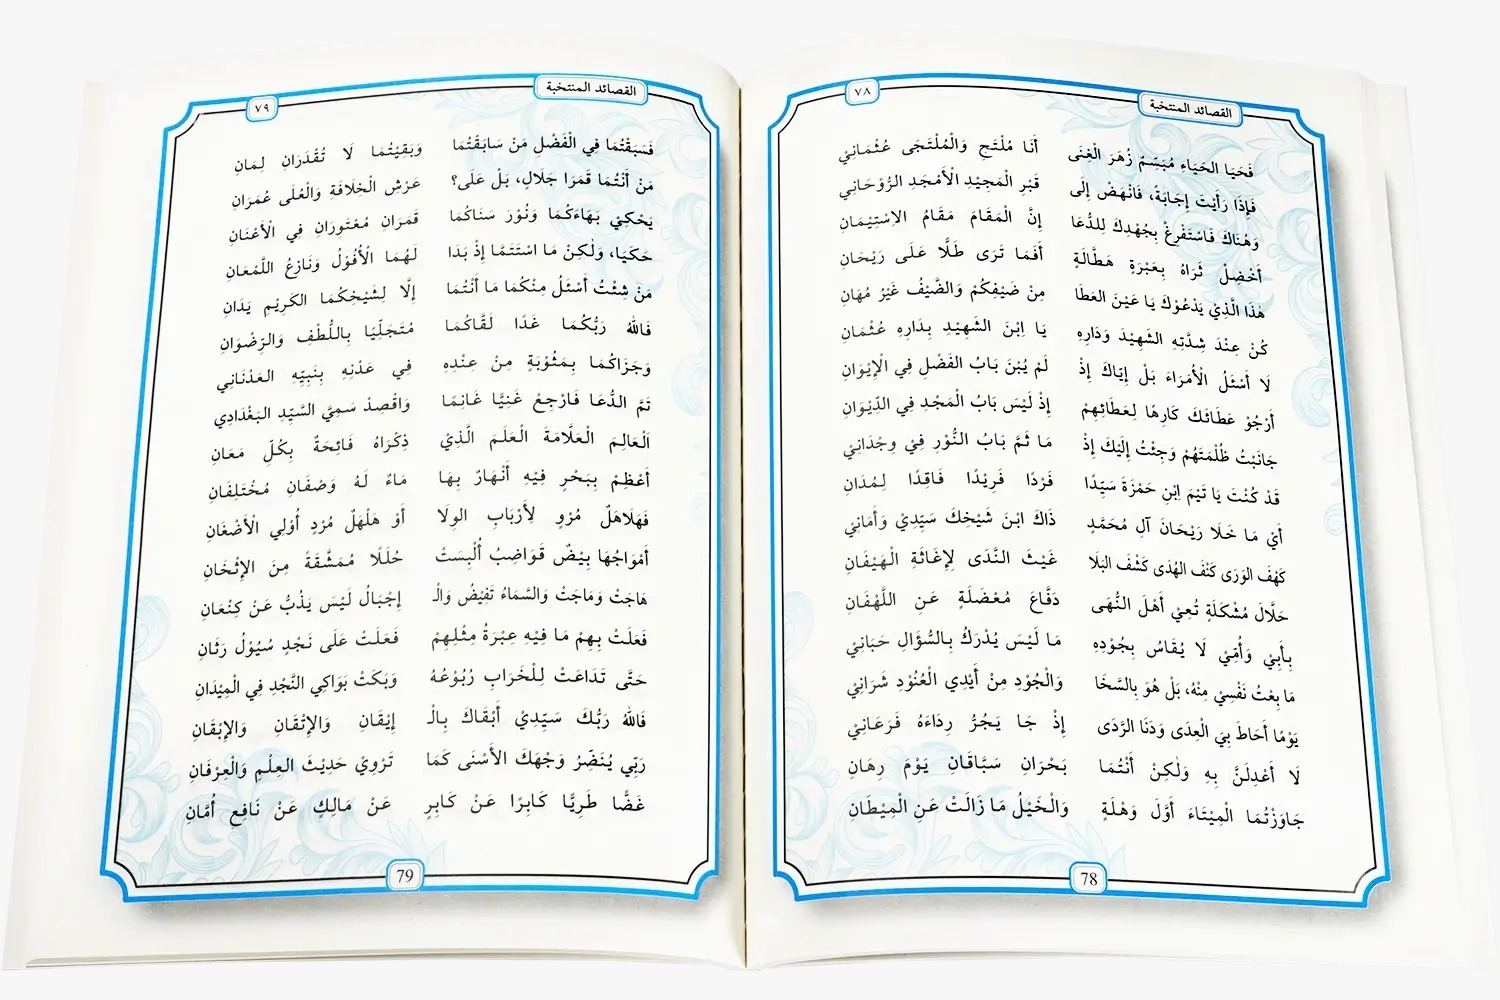 القصائد المنتخبة
٧٨
فَحَيَا الحَيَاءِ مُبَسِّمٌ زُهَرَ الْغِنَى أَنَا مُلْتَجٍ وَالْمُلْتَجَى عُثْمَانِيْ
فَإِذَا رَأَيْتَ إِجَابَةً، فَانْهَضْ إِلَى قَبْرِ الْمَجِيْدِ الْأَمْجَدِ الرَّوْحَانِيْ
وَهُنَاكَ فَاسْتَفْرِغْ بِجُهْدِكَ لِلدُّعَا إِنَّ الْمَقَامَ مَقَامُ الِاسْتِيْمَانِ
أَخْضِلْ ثَرَاهُ بِعَبْرَةِ هَطَّالَةٍ أَفَمَا تَرَى طَلًّا عَلَى رَيْحَانِ
هَذَا الَّذِيْ يَدْعُوْكَ يَا عَيْنَ العَطَا مِنْ ضَيْفِكُمْ وَالضَّيْفُ غَيْرُ مُهَانِ
كُنْ عِنْدَ شِدَّتِهِ الشَّهِيْدَ وَدَارِهِ يَا اِبْنَ الشَّهِيْدِ بِدَارِهِ عُثْمَانِ
لَا أَسْئَلُ الْأُمَرَاءَ بَلْ إِيَّاكَ إِذْ لَمْ يُبْنَ بَابُ الفَضْلِ فِي الْإِيْوَانِ
أَرْجُوْ عَطَائَكَ كَارِهًا لِعَطَائِهِمْ إِذْ لَيْسَ بَابُ الْمَجْدِ فِي الدِّيْوَانِ
جَانَبْتُ ظُلْمَتَهُمْ وَجِئْتُ إِلَيْكَ إِذْ مَا ثَمَّ بَابُ النُّوْرِ فِيْ وِجْدَانِيْ
قَدْ كُنْتَ يَا تَيْمَ اِبْنِ حَمْزَةَ سَيِّدًا فَرْدًا فَرِيْدًا فَاقِدًا لِمُدَانِ
أَيْ مَا خَلَا رَيْحَانَ آلِ مُحَمَّدٍ ذَاكَ ابْنَ شَيْخِكَ سَيِّدِيْ وَأَمَانِيْ
كَهْفَ الوَرَى كَنْفَ الهُدَى كَشْفَ البَلَا غَيْثَ النَّدَى لِإِغَاثَةِ الْهَيْفَانِ
حَلَّالَ مُشْكَلَةٍ تُعِيْ أَهْلَ النُّهَى دَفَّاعَ مُعْضَلَةٍ عَنِ اللَّهْفَانِ
بِأَبِيْ وَأُمِّيْ لَا يُقَاسُ بِجُوْدِهِ مَا لَيْسَ يُدْرَكُ بِالسُّؤَالِ حَبَانِيْ
مَا بِعْتُ نَفْسِيْ مِنْهُ، بَلْ هُوَ بِالسَّخَا وَالْجُوْدِ مِنْ أَيْدِي الْعُنُوْدِ شَرَانِيْ
يَوْمًا أَحَاطَ بِيَ الْعِدَى وَدَنَا الرَّدَى إِذْ جَا يَجُرُّ رِدَاءَهُ فَرَعَانِيْ
لَا أَعْدِلَنَّ بِهِ وَلٰكِنْ أَنْتُمَا بَحْرَانِ سَبَّاقَانِ يَوْمَ رِهَانِ
جَاوَزْتُمَا الْمِيْتَاءَ أَوَّلَ وَهْلَةٍ وَالْخَيْلُ مَا زَالَتْ عَنِ الْمِيْطَانِ
78
القصائد المنتخبة
٧٩
فَسَبَقْتُمَا فِي الْفَضْلِ مَنْ سَابَقْتُمَا وَبَقِيْتُمَا لَا تُقْدَرَانِ لِمَانِ
مَنْ أَنْتُمَا قَمَرَا جَلَالٍ، بَلْ عَلَى؟ عَرْشِ الْخِلَافَةِ وَالْعُلَى عُمَرَانِ
يَحْكِيْ بَهَاءَكُمَا وَنُوْرَ سَنَاكُمَا قَمَرَانِ مُعْتَورَانِ فِي الْأَعْنَانِ
حَكَيَا، وَلٰكِنْ مَا اسْتَتَمَّا إِذْ بَدَا لَهُمَا الْأُفُوْلُ وَنَازِعُ اللَّمْعَانِ
مَنْ شِئْتُ أَسْئَلُ مِنْكُمَا مَا أَنْتُمَا إِلَّا لِشَيْخِكُمَا الكَرِيْمِ يَدَانِ
فَاللهُ رَبُّكُمَا غَدًا لَقَّاكُمَا مُتَجَلِّيًا بِاللُّطْفِ وَالرِّضْوَانِ
وَجَزَاكُمَا بِمَثُوْبَةٍ مِنْ عِنْدِهِ فِي عَدْنِهِ بِنَبِيِّهِ العَدْنَانِي
تَمَّ الدُّعَا فَارْجِعْ غَنِيًّا غَانِمًا وَاقْصِدْ سَمِيَّ السَّيِّدِ البَغْدَادِي
اَلعَالِمَ الْعَلَّامَةَ الْعَلَمَ الَّذِيْ ذِكْرَاهُ فَائِحَةٌ بِكُلِّ مَعَانِ
أَعْظِمْ بِبَحْرٍ فِيْهِ أَنْهَارٌ بِهَا مَاءٌ لَهُ وَصْفَانِ مُخْتَلِفَانِ
فَهَلَاهَلٌ مُرْوٍ لِأَرْبَابِ الوِلَا أَوْ هَلْهَلٌ مُرْدٍ أُوْلِي الْأَضْغَانِ
أَمْوَاجُهَا بِيْضٌ قَوَاضِبُ أُلْبِسَتْ حُلَلًا مُمَشَّقَةً مِنَ الإِثْخَانِ
هَاجَتْ وَمَاجَتْ وَالسَّمَاءُ تَفِيْضُ وَالْـ إِجْبَالُ لَيْسَ يَذْبُّ عَنْ كِنْعَانِ
فَعَلَتْ بِهِمْ مَا فِيْهِ عِبْرَةُ مِثْلِهِمْ فَعَلَتْ عَلَى نَجْدٍ سُيُوْلُ رَثَانِ
حَتَّى تَدَاعَتْ لِلْخَرَابِ رُبُوْعُهُ وَبَكَتْ بَوَاكِي النَّجْدِ فِي الْمِيْدَانِ
فَاللهُ رَبُّكَ سَيِّدِيْ أَبْقَاكَ بِالْـ إِيْقَانِ وَالإِتْقَانِ وَالإِبْقَانِ
رَبِّي يُنَضِّرُ وَجْهَكَ الأَسْنَى كَمَا تَرْوِيْ حَدِيْثَ العِلْمِ وَالْعِرْفَانِ
غَضًّا طَرِيًّا كَابِرًا عَنْ كَابِرٍ عَنْ مَالِكٍ عَنْ نَافِعِ أُمَّانِ
79